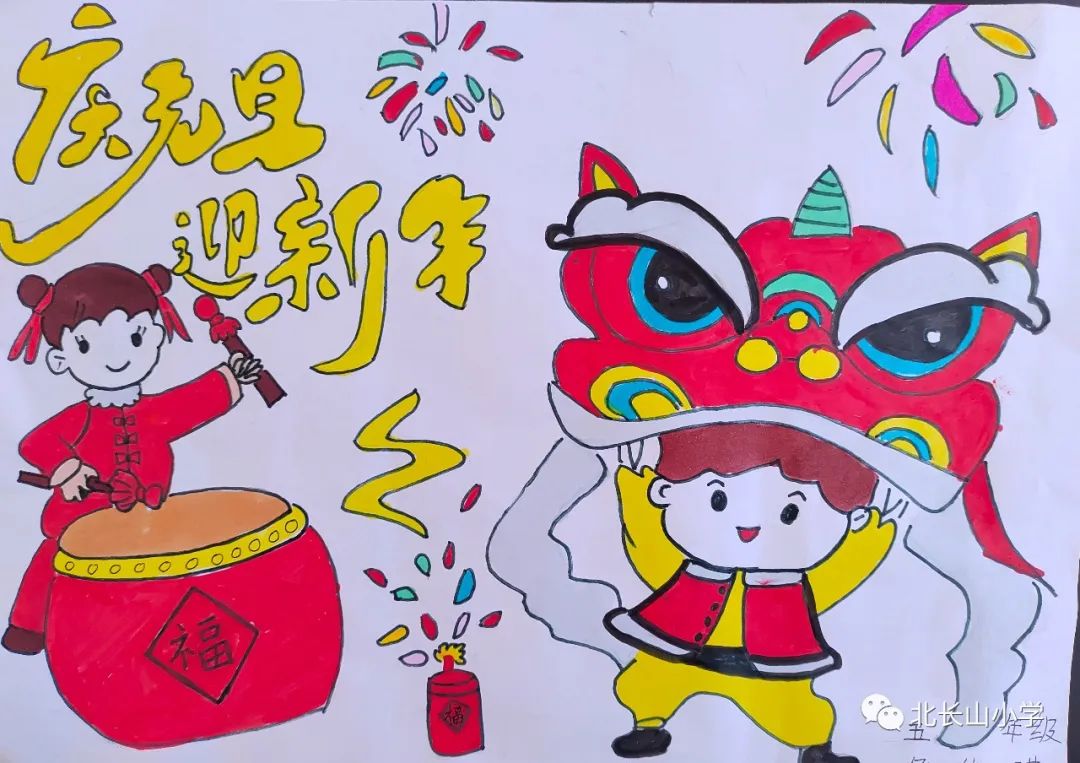 庆元旦
迎新年
福
福
北长山小学
五 年级